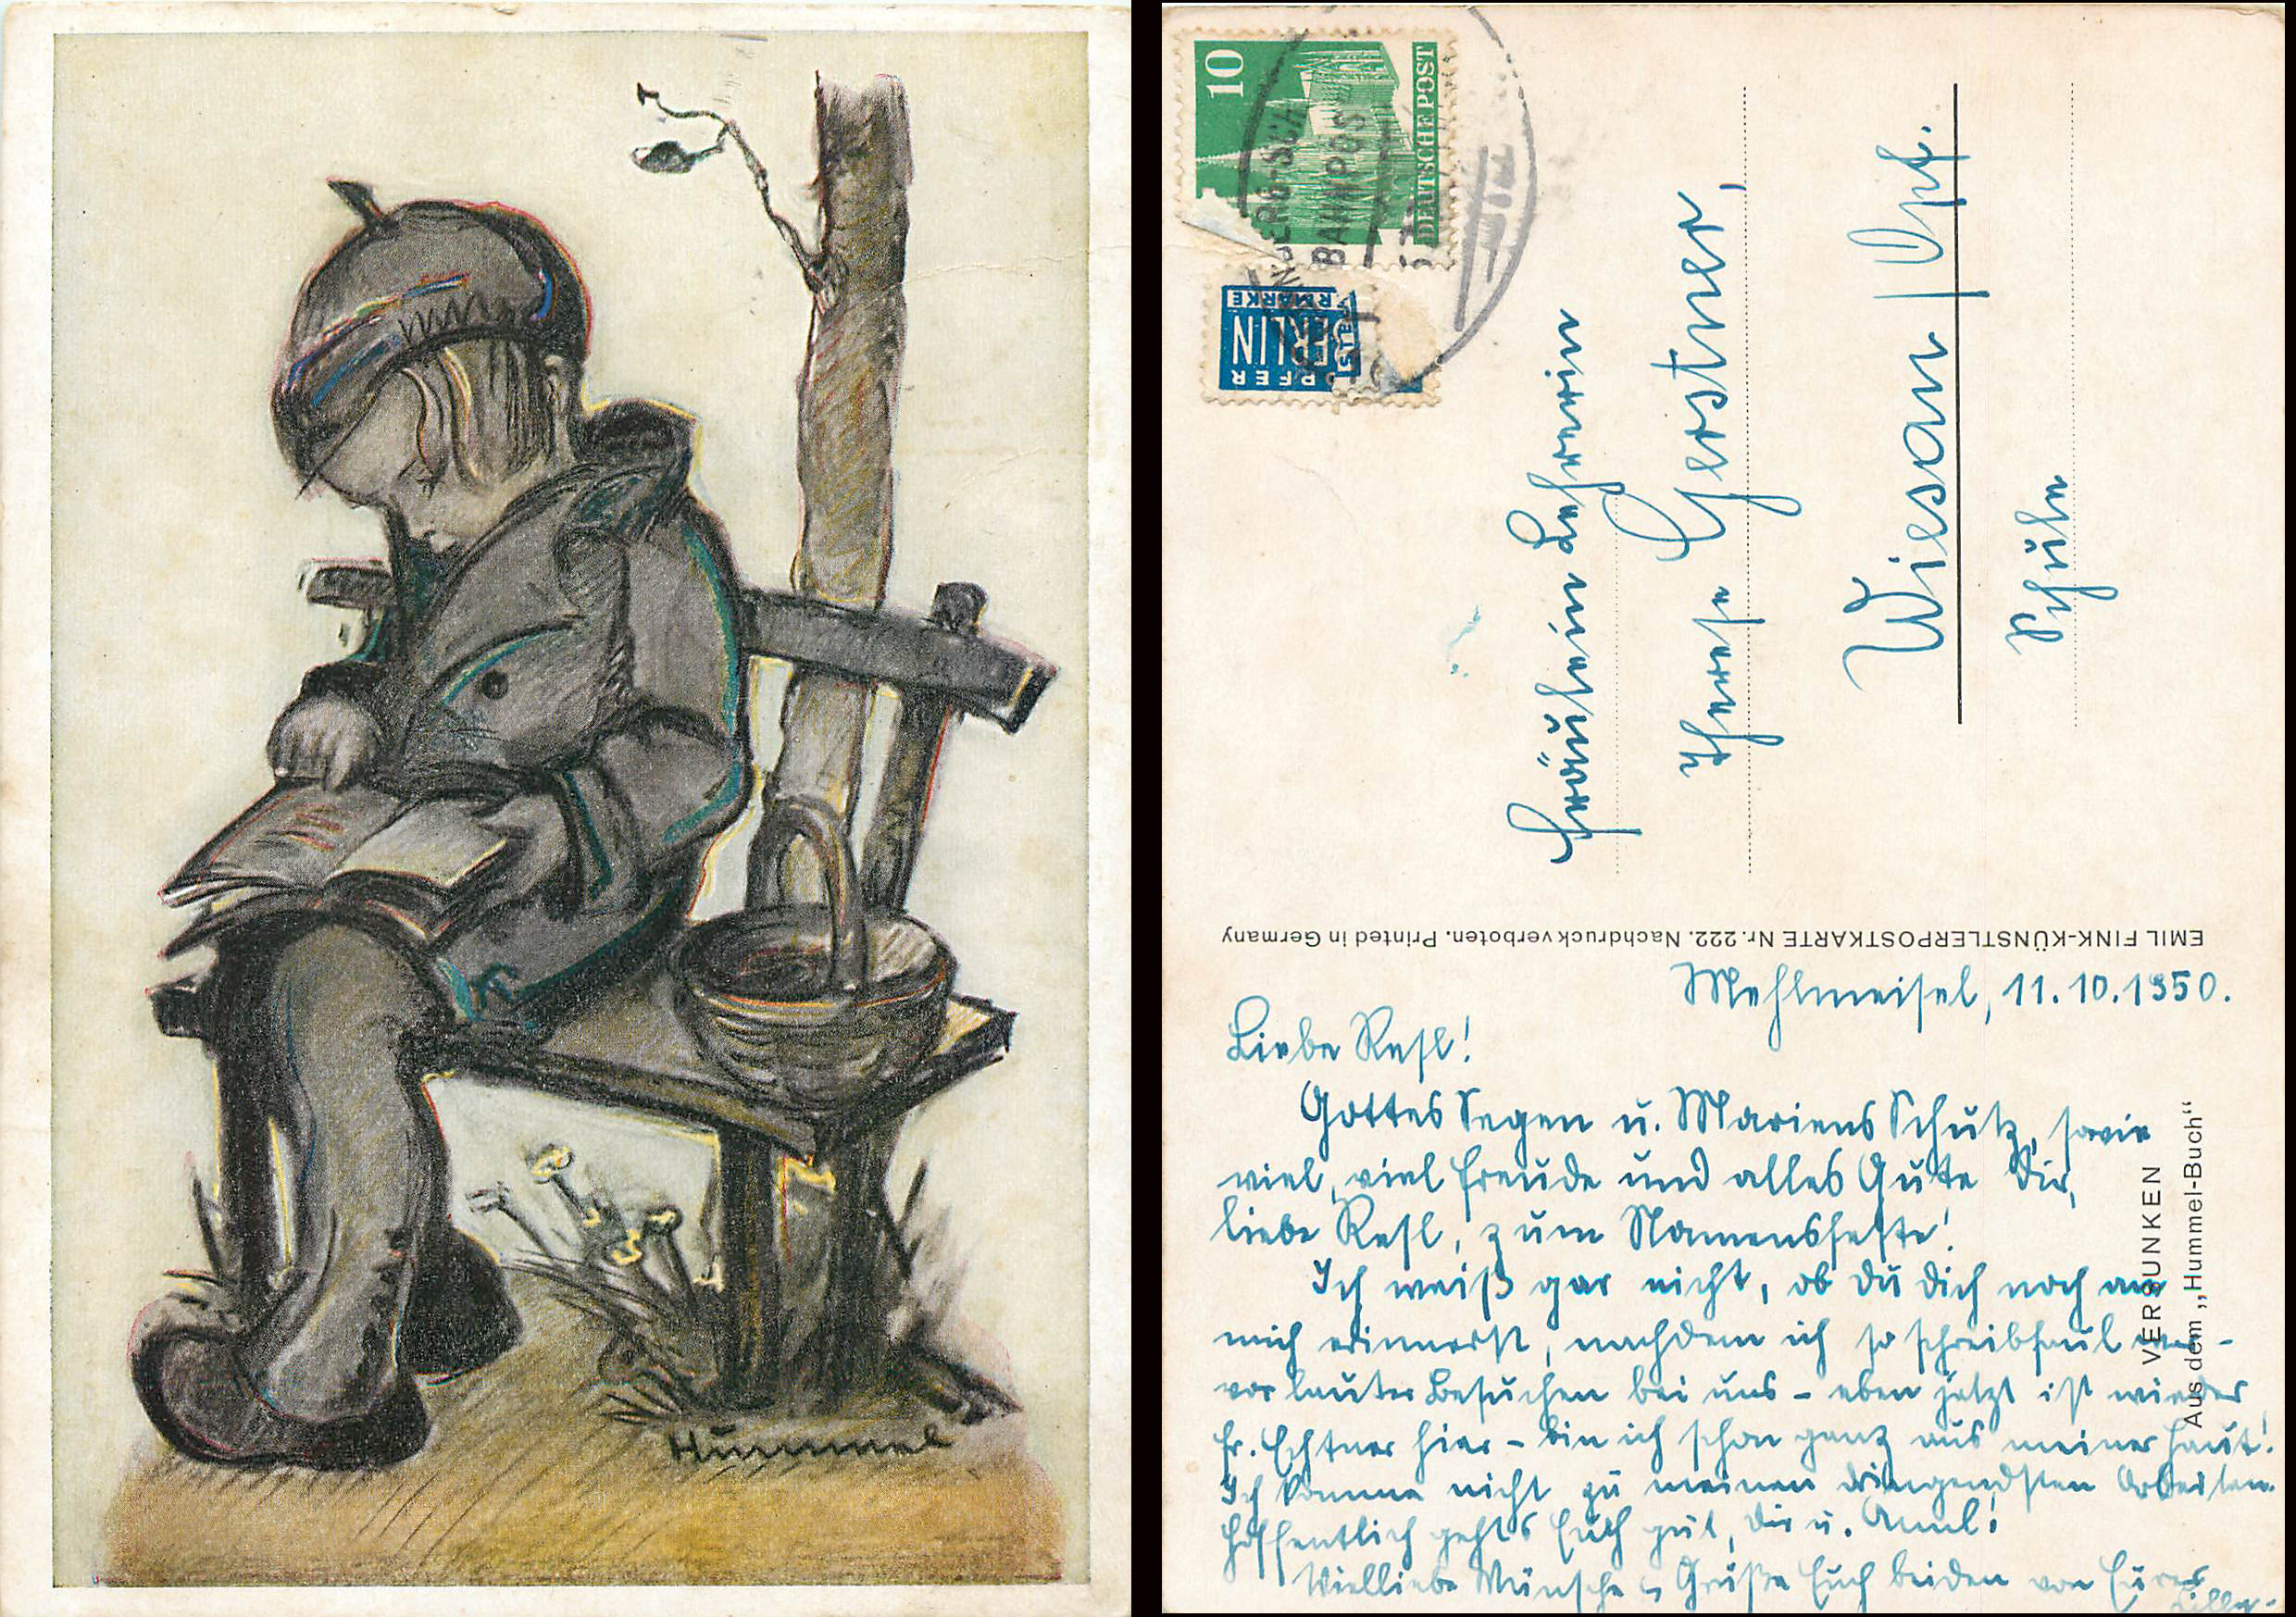 Hummel
10
DEUTSCHE POST
BAHNPOST
NOTOPFER
BERLIN
STEUERMARKE
Fräulein Lehrerin
Therese Gerstner,
Wiesau/Opf.
Schule
EMIL FINK-KÜNSTLERPOSTKARTE Nr. 222. Nachdruck verboten. Printed in Germany
Mehlmeisel, 11.10.1950.
Liebe Resl!
Gottes Segen u. Mariens Schutz, sowie
viel, viel Freude und alles Gute Dir,
liebe Resl, zum Namensfeste!
Ich weiß gar nicht, ob Du Dich noch an
mich erinnerst, nachdem ich so schreibfaul war -
vor lauter Besuchen bei uns - eben jetzt ist wieder
Fr. hier - bin ich schon ganz aus meiner Haut!
Ich komme nicht zu meinen dringendsten Arbeiten.
Hoffentlich geht's Euch gut, Dir u. Annl!
Vielliebe Wünsche u. Grüße Euch beiden von Eurer
Lilly.
VERSUNKEN
Aus dem „Hummel-Buch“